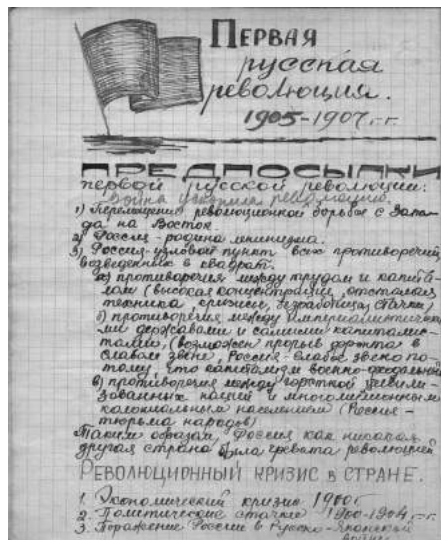 Первая
русская
революция.
1905-1907 г.г.
ПРЕДПОСЫЛКИ
первой русской революции:
Война ускорила революцию.
1) Перемещение революционной борьбы с Запа-
да на Восток
2) Россия - родина ленинизма.
3) Россия-узловой пункт всех противоречий,
возведенных в квадрат:
а) противоречия между трудом и капита-
лом (высокая концентрация, отсталая
техника, кризисы, безработица, стачки)
б) противоречия между империалистически-
ми державами и самими капиталис-
тами, (возможен прорыв фронта в
слабом звене, Россия-слабое звено по-
тому, что капитализм военно-феодальный
в) противоречия между горсткой цивили-
зованных наций и многомиллионным
колониальным населением (Россия-
тюрьма народов)
Таким образом, Россия как никакая
другая страна была чревата революцией
Революционный кризис в стране.
1. Экономический кризис 1900г
2. Политические стачки 1900-1904 г-г
3. Поражение России в Русско-Японской
войне